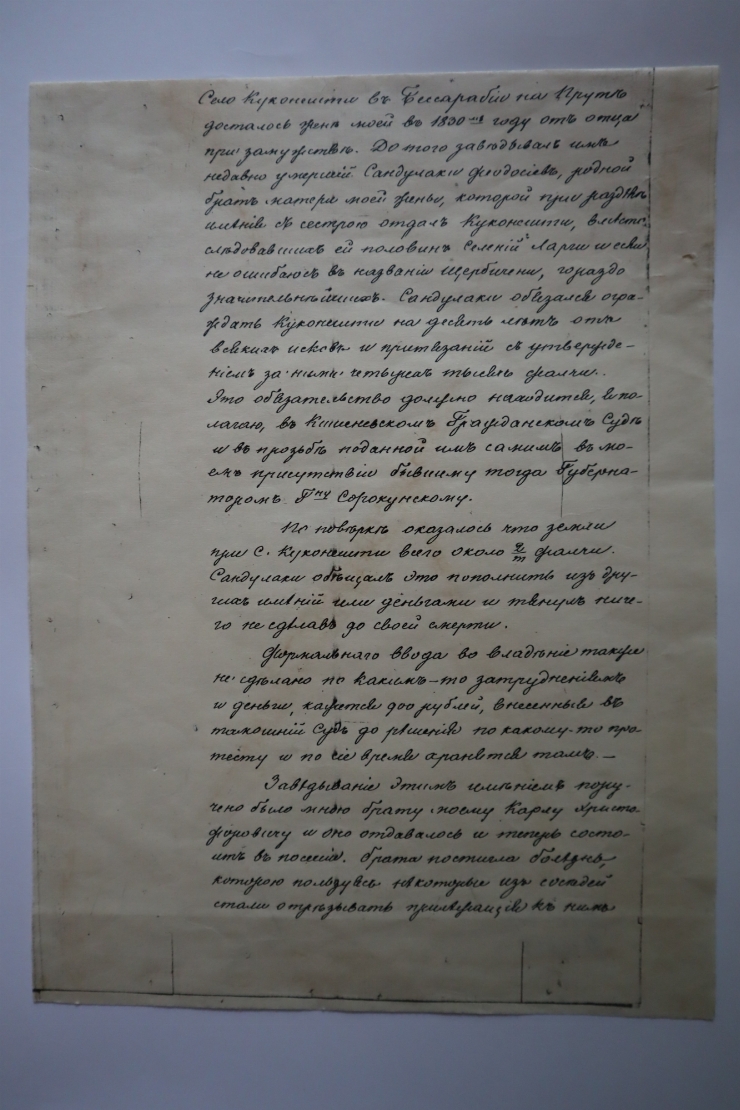 Село Куконешти въ Бессарабіи на Прутѣ
досталось женѣ моей въ 1830мъ году отъ отца
при замужствѣ. До того завѣдывалъ имъ
недавно умершій Сандулаки Феодосіевъ, родной
братъ матери моей жены, которой при раздѣлѣ
имѣнія съ сестрою отдалъ Куконешти, вмѣсто
слѣдовавшихъ ей половинъ селеній Ларги и если
не ошибаюсь въ названіи Щербичени, гораздо
значительнѣйшихъ. Сандулаки обязался огра-
ждать Куконешти на десять лѣтъ отъ
всякихъ исковъ и притязаній съ утвержде-
ніемъ за ними четырехъ тысячъ фалчи.
Это обязательство должно находится, я по-
лагаю, въ Кишеневскомъ Гражданскомъ Судѣ
и въ прозьбѣ поданной имъ самимъ въ мо-
емъ присутствіи бывшему тогда Губерна-
торомъ Гну Сорокунскому.
По повѣркѣ оказалось что земли
при С. Куконешти всего около 2/т фалчи.
Сандулаки обѣщалъ это пополнить изъ дру-
гихъ имѣній или деньгами и тянулъ ниче-
го не сдѣлавъ до своей смерти.
Формальнаго ввода во владѣніе также
не сдѣлано по какимъ-то затрудненіямъ
и деньги, кажется 900 рублей, внесенные въ
тамошній Судъ до рѣшенія по какому-то про-
тесту и по сіе время хранятся тамъ. —
Завѣдываніе этимъ имѣніемъ пору-
чено было мною брату моему Карлу Христо-
форовичу и оно отдавалось и теперь состо-
итъ въ посесіи. Брата постигла болѣзнь,
которою пользуясь нѣкоторые изъ сосѣдей
стали отрѣзывать прилежащія къ нимъ